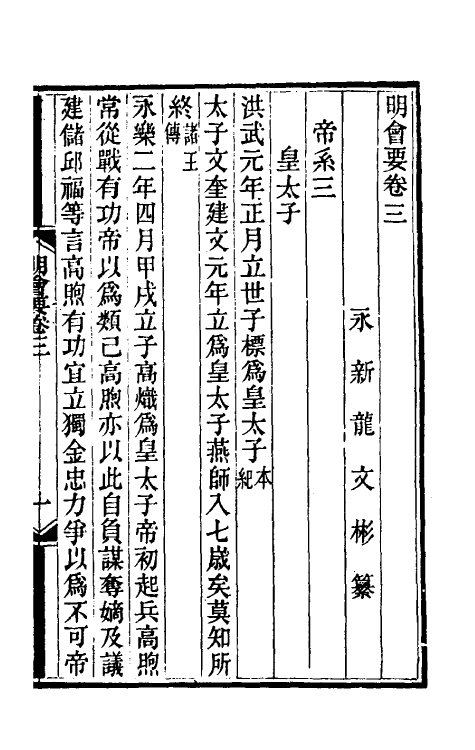 明會要卷三
永新龍文彬纂
帝系三
皇太子
洪武元年正月立世子標爲皇太子本紀
太子文奎建文元年立爲皇太子燕師入七歲矣莫知所
終諸王傳
永樂二年四月甲戌立子高熾爲皇太子帝初起兵高煦
常從戰有功帝以爲類己高煦亦以此自負謀奪嫡及議
建儲邱福等言高煦有功宜立獨金忠力爭以爲不可帝
明會要卷三
一